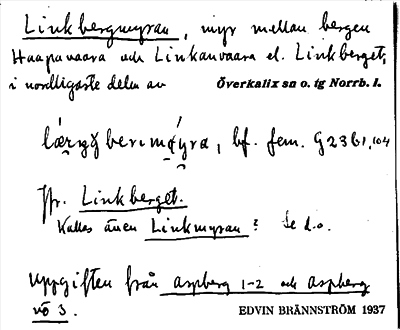 Linkbergmyran, myr mellan bergen
Haapavaara och Linkanvaara el. Linkberget,
i nordligaste delen av Överkalix sn o. tg Norrb. l.
bf. fem. G23b1,104
Jfr. Linkberget.
Kallas även Linkmyran? Se d.o.
Uppgiften från Aspberg 1-2 och Aspberg
nö 3.
EDVIN BRÄNNSTRÖM 1937